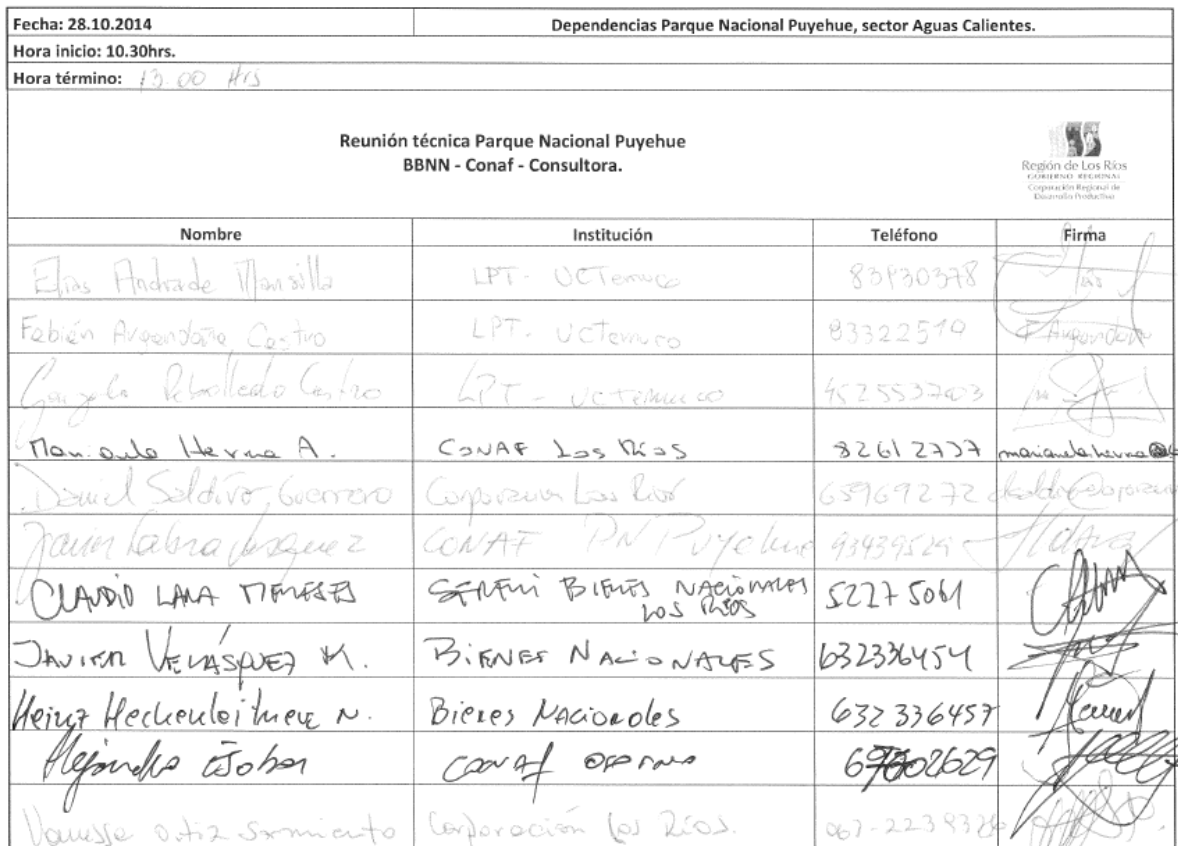 Fecha: 28.10.2014 Dependencias Parque Nacional Puyehue, sector Aguas Calientes.
Hora inicio: 10.30hrs.
Hora término: 13.00 Hrs
Reunión técnica Parque Nacional Puyehue
BBNN - Conaf - Consultora.
Región de Los Ríos
GOBIERNO REGIONAL
Corporación Regional de
Desarrollo Productivo
Nombre Institución Teléfono Firma
Elias Andrade Mansilla LPT - UCTemuco 83930378
Fabián Avendaño Castro LPT - UCTemuco 83322519 F Avendaño
Gonzalo Rebolledo Castro LPT - UCTemuco
Marianela Herna A. CONAF Los Ríos 82612737
Daniel Saldivo Guerrero Corporación Los Ríos 65969272
Javier Labra CONAF PN Puyehue 93439529
CLAUDIO LARA MENESES SEREMI BIENES NACIONALES
LOS RIOS 52275061
JAVIER VELÁSQUEZ K. BIENES NACIONALES 632336454
Heinz N. Bienes Nacionales 632 336457
Alejandra CONAF
Vanessa Ortiz Sarmiento Corporación los Ríos.